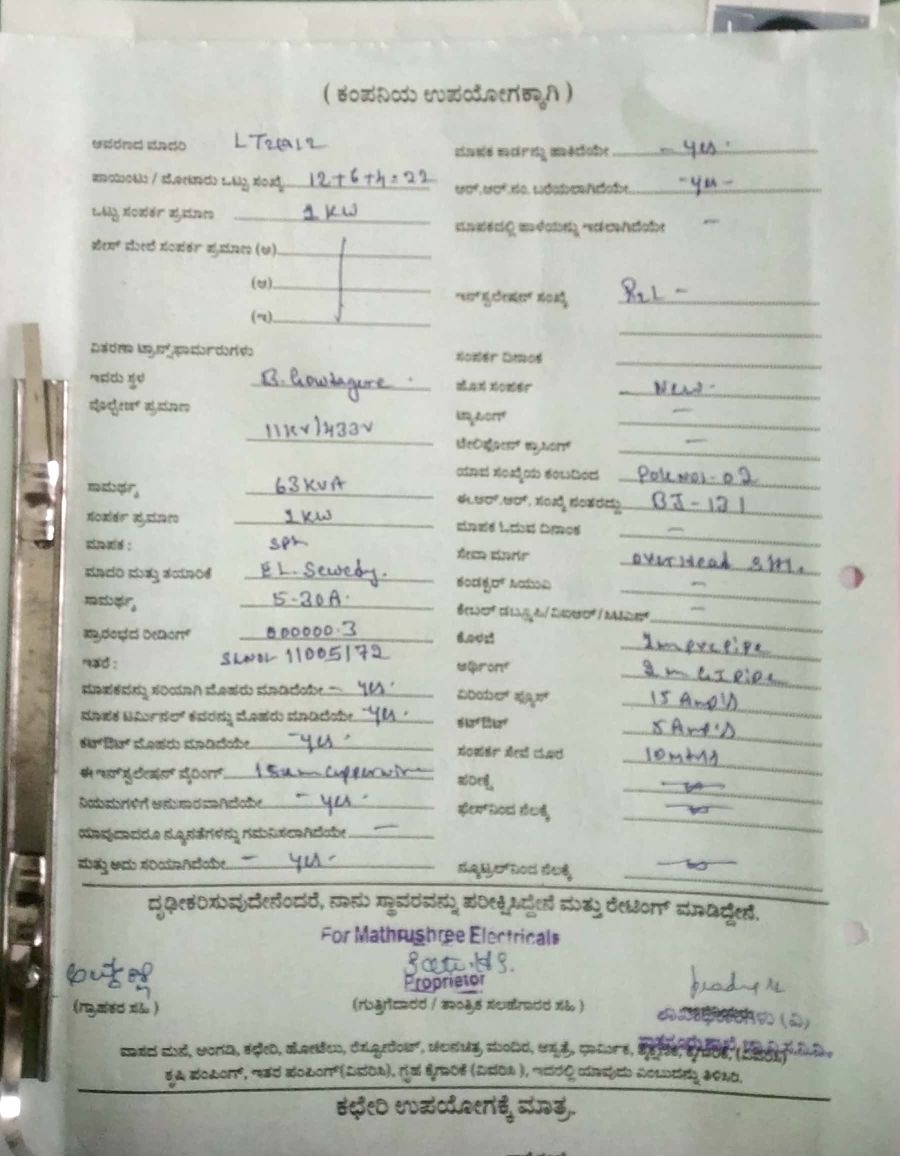 ( ಕಂಪನಿಯ ಉಪಯೋಗಕ್ಕಾಗಿ )
ಆವರಣದ ಮಾದರಿ
ಪಾಯಿಂಟು / ಮೋಟಾರು ಒಟ್ಟು ಸಂಖ್ಯೆ 12+6+4=22
ಒಟ್ಟು ಸಂಪರ್ಕ ಪ್ರಮಾಣ 1 KW
ಫೇಸ್ ಮೇಲೆ ಸಂಪರ್ಕ ಪ್ರಮಾಣ (ಅ)
(ಆ)
(ಇ)
ವಿತರಣಾ ಟ್ರಾನ್ಸ್‌ಫಾರ್ಮರುಗಳು
ಇವರು ಸ್ಥಳ B. Gowdagere
ವೊಲ್ಟೇಜ್ ಪ್ರಮಾಣ
11KV/433V
ಸಾಮರ್ಥ್ಯ 63KVA
ಸಂಪರ್ಕ ಪ್ರಮಾಣ 1 KW
ಮಾಪಕ :
ಮಾದರಿ ಮತ್ತು ತಯಾರಿಕೆ EL. Sewedy.
ಸಾಮರ್ಥ್ಯ 5-30A.
ಪ್ರಾರಂಭದ ರೀಡಿಂಗ್ 000000.3
ಇತರೆ : SLNO1- 11005172
ಮಾಪಕವನ್ನು ಸರಿಯಾಗಿ ಮೊಹರು ಮಾಡಿದೆಯೇ - yes.
ಮಾಪಕ ಟರ್ಮಿನಲ್ ಕವರನ್ನು ಮೊಹರು ಮಾಡಿದೆಯೇ -yes.
ಕಟ್‌ಔಟ್ ಮೊಹರು ಮಾಡಿದೆಯೇ -yes.
ಈ ಇನ್‌ಸ್ಟಲೇಷನ್ ವೈರಿಂಗ್
ನಿಯಮಗಳಿಗೆ ಅನುಸಾರವಾಗಿದೆಯೇ - yes.
ಯಾವುದಾದರೂ ನ್ಯೂನತೆಗಳನ್ನು ಗಮನಿಸಲಾಗಿದೆಯೇ —
ಮತ್ತು ಅದು ಸರಿಯಾಗಿದೆಯೇ - yes.
ಮಾಪಕ ಕಾರ್ಡನ್ನು ಹಾಕಿದೆಯೇ - yes.
ಆರ್.ಆರ್.ನಂ. ಬರೆಯಲಾಗಿದೆಯೇ -yes-
ಮಾಪಕದಲ್ಲಿ ಹಾಳೆಯನ್ನು ಇಡಲಾಗಿದೆಯೇ —
ಇನ್‌ಸ್ಟಲೇಷನ್ ಸಂಖ್ಯೆ
ಸಂಪರ್ಕ ದಿನಾಂಕ
ಹೊಸ ಸಂಪರ್ಕ New.
ಟ್ಯಾಪಿಂಗ್ —
ಟೆಲಿಫೋನ್ ಕ್ರಾಸಿಂಗ್ —
ಯಾವ ಸಂಖ್ಯೆಯ ಕಂಬದಿಂದ Pole NO1-02
ಈ.ಆರ್.ಆರ್. ಸಂಖ್ಯೆ ನಂತರದ್ದು BJ-131
ಮಾಪಕ ಓದುವ ದಿನಾಂಕ —
ಸೇವಾ ಮಾರ್ಗ over Head
ಕಂಡಕ್ಟರ್ ಸಿಯುವಿ —
ಕೇಬಲ್ ಡಬ್ಲ್ಯೂಸಿ/ವಿಐಆರ್/ —
ಕೊಳವೆ 2m pvc pipe
ಅರ್ಥಿಂಗ್ 2m GI pipe
ಏರಿಯಲ್ ಫ್ಯೂಸ್ 15 Amp's
ಕಟ್‌ಔಟ್ 5 Amp's
ಸಂಪರ್ಕ ಸೇವೆ ದೂರ 10 mtrs
ಪರೀಕ್ಷೆ
ಫೇಸ್‌ನಿಂದ ನೆಲಕ್ಕೆ
ನ್ಯೂಟ್ರಲ್‌ನಿಂದ ನೆಲಕ್ಕೆ
ದೃಢೀಕರಿಸುವುದೇನೆಂದರೆ, ನಾನು ಸ್ಥಾವರವನ್ನು ಪರೀಕ್ಷಿಸಿದ್ದೇನೆ ಮತ್ತು ರೇಟಿಂಗ್ ಮಾಡಿದ್ದೇನೆ.
For Mathrushree Electricals
Proprietor
(ಗ್ರಾಹಕರ ಸಹಿ )
(ಗುತ್ತಿಗೆದಾರರ / ತಾಂತ್ರಿಕ ಸಲಹೆಗಾರರ ಸಹಿ )
ವಾಸದ ಮನೆ, ಅಂಗಡಿ, ಕಛೇರಿ, ಹೋಟೆಲು, ರೆಸ್ಟೋರೆಂಟ್, ಚಲನಚಿತ್ರ ಮಂದಿರ, ಆಸ್ಪತ್ರೆ, ಧಾರ್ಮಿಕ, ಶೈಕ್ಷಣಿಕ, ಕೈಗಾರಿಕೆ, (ವಿವರಿಸಿ)
ಕೃಷಿ ಪಂಪಿಂಗ್, ಇತರ ಪಂಪಿಂಗ್(ವಿವರಿಸಿ), ಗೃಹ ಕೈಗಾರಿಕೆ (ವಿವರಿಸಿ ), ಇದರಲ್ಲಿ ಯಾವುದು ಎಂಬುದನ್ನು ತಿಳಿಸಿರಿ.
ಕಛೇರಿ ಉಪಯೋಗಕ್ಕೆ ಮಾತ್ರ.